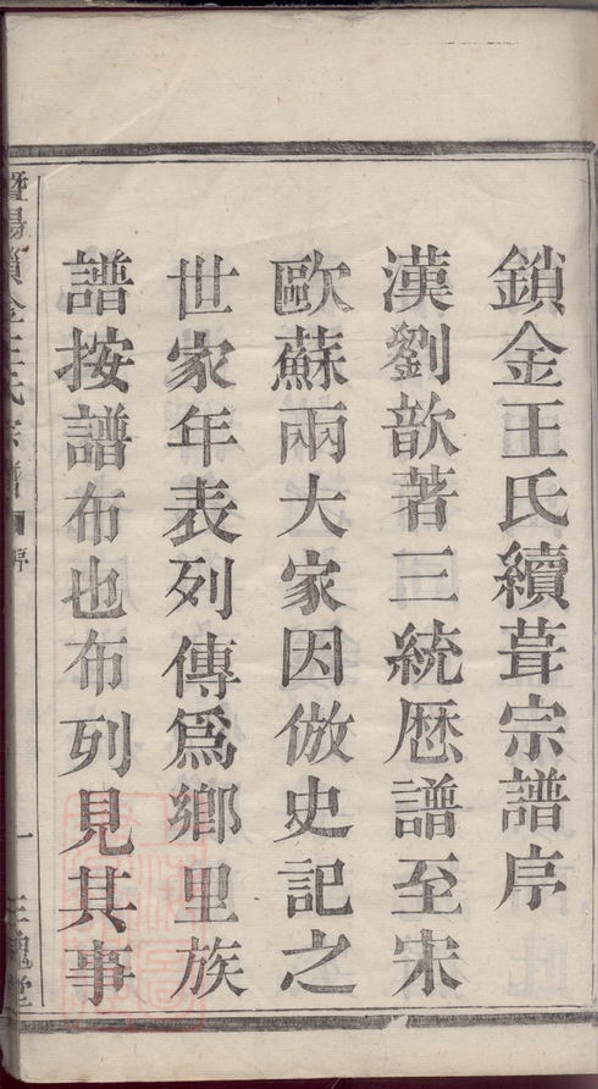 鎖金王氏續葺宗譜序
漢劉歆著三統厯譜至宋
歐蘇兩大家因倣史記之
世家年表列傳爲鄉里族
譜按譜布也布列見其事
暨陽鎖金王氏宗譜
序
一
三槐堂